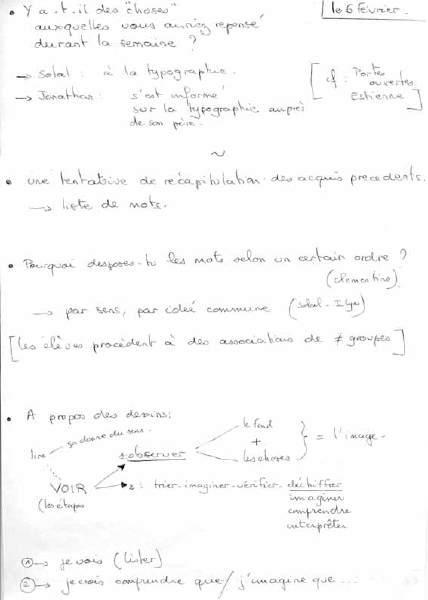 • Y a-t-il des "choses"
auxquelles vous auriez repensé
durant la semaine ?
le 6 février.
→ Solal : à la typographie.
→ Jonathan : s'est informé
sur la typographie auprès
de son père.
[cf : Portes
ouvertes
Estienne]
~
• une tentative de récapitulation des acquis précédents.
→ liste de mots.
• Pourquoi disposes-tu les mots selon un certain ordre ?
(clémentine)
→ par sens, par idée commune (Solal - Ilya)
[les élèves procèdent à des associations de ≠ groupes]
• A propos des dessins :
lire ça donne du sens
1: observer
le fond
+
les choses
} = l'image.
VOIR
(les étapes
2 : trier-imaginer-vérifier-déchiffrer
imaginer
comprendre
interpréter
① → je vois (lister)
② → je crois comprendre que / j'imagine que ...